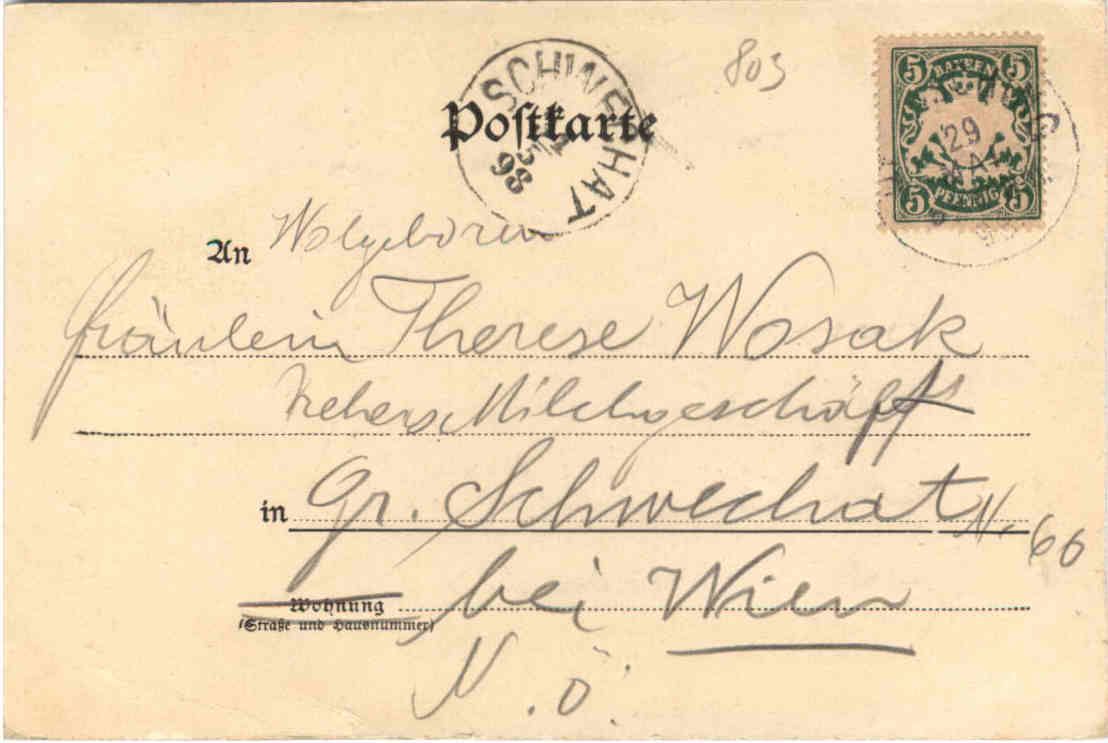 803
SCHWECHAT
98
Postkarte
5 BAYERN 5
29
MAI
5 PFENNIG 5
An Wolgeboren
Fräulein Therese Wosak
Milchgeschäft
in Gr. Schwechat N. 66
Wohnung bei Wien
(Straße und Hausnummer)
N. Ö.